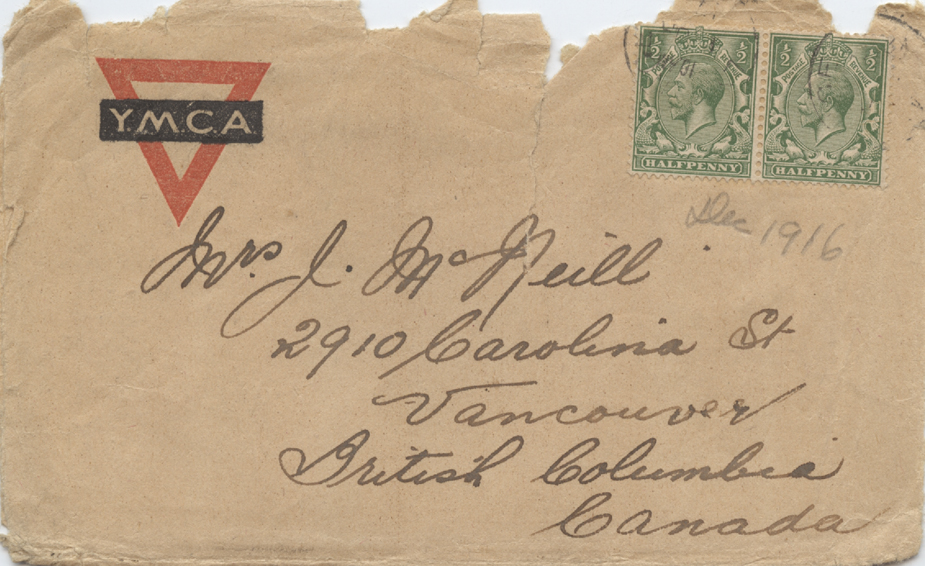 Y.M.C.A
½ ½ ½ ½
POSTAGE REVENUE POSTAGE REVENUE
HALFPENNY HALFPENNY
Dec 1916
Mrs. J. McNeill
2910 Carolina St
Vancouver
British Columbia
Canada